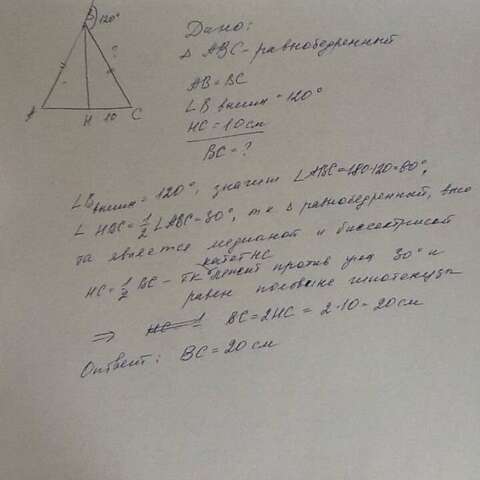 B 120°
?
A H 10 C
Дано:
△ ABC - равнобедренный
AB = BC
∠B внешн = 120°
HC = 10 см
BC = ?
∠B внешн = 120°, значит ∠ABC = 180-120 = 60°,
∠ HBC = 1/2 ∠ABC = 30°, т к △ равнобедренный, высо
та является медианой и биссектрисой
катет HC
HC = 1/2 BC - тк лежит против угла 30° и
равен половине гипотенузы
⇒ BC = 2HC = 2·10 = 20 см
Ответ: BC = 20 см